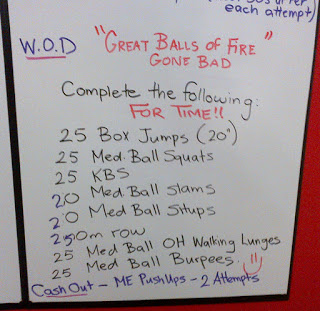 each attempt)
W.O.D "GREAT BALLS OF FIRE"
GONE BAD
Complete the following:
FOR TIME!!
25 Box Jumps (20")
25 Med. Ball Squats
25 KBS
20 Med Ball Slams
20 Med Ball Situps
250m row
25 Med Ball OH Walking Lunges
25 Med Ball Burpees
Cash Out - ME Push Ups - 2 Attempts